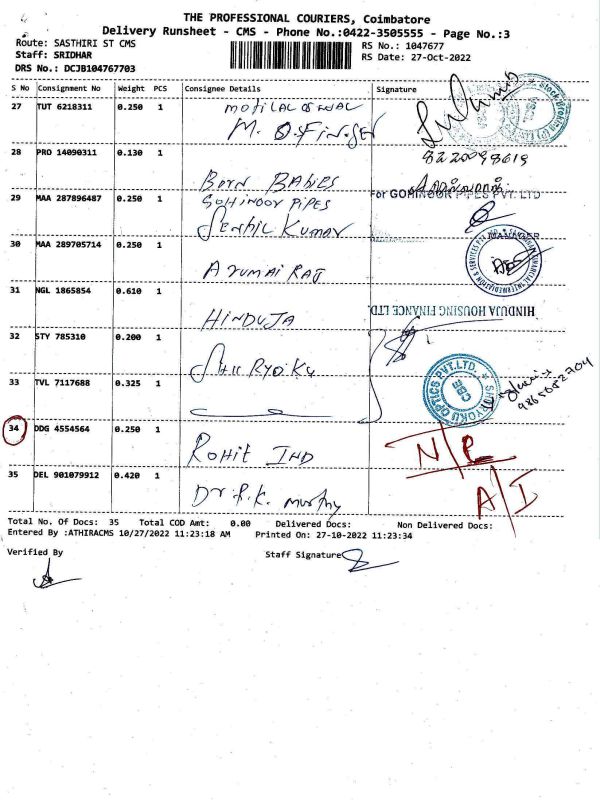 THE PROFESSIONAL COURIERS, Coimbatore
Delivery Runsheet - CMS - Phone No.:0422-3505555 - Page No.:3
Route: SASTHIRI ST CMS
Staff: SRIDHAR
DRS No.: DCJB104767703
RS No.: 1047677
RS Date: 27-Oct-2022
S No Consignment No Weight PCS Consignee Details Signature
27 TUT 6218311 0.250 1 MOTILAL OSWAL
M. O. Fin. Ser
8220098619
28 PRO 14090311 0.130 1
Born Babies
29 MAA 287896487 0.250 1 GOHINOOR PIPES
For GOHINOOR PIPES PVT. LTD
Senthil Kumar
MANAGER
30 MAA 289705714 0.250 1
Arumai Raj
31 NGL 1865854 0.610 1
HINDUJA
HINDUJA HOUSING FINANCE LTD.
32 STY 785310 0.200 1
Shu Ryoiku
SHURYOKU OPTICS PVT.LTD.
CBE
9865682704
33 TVL 7117688 0.325 1
34 DDG 4554564 0.250 1
Rohit IND
N/P
35 DEL 901079912 0.420 1
A/I
Dr. R.K. Murthy
Total No. Of Docs: 35 Total COD Amt: 0.00 Delivered Docs: Non Delivered Docs:
Entered By :ATHIRACMS 10/27/2022 11:23:18 AM Printed On: 27-10-2022 11:23:34
Verified By Staff Signature